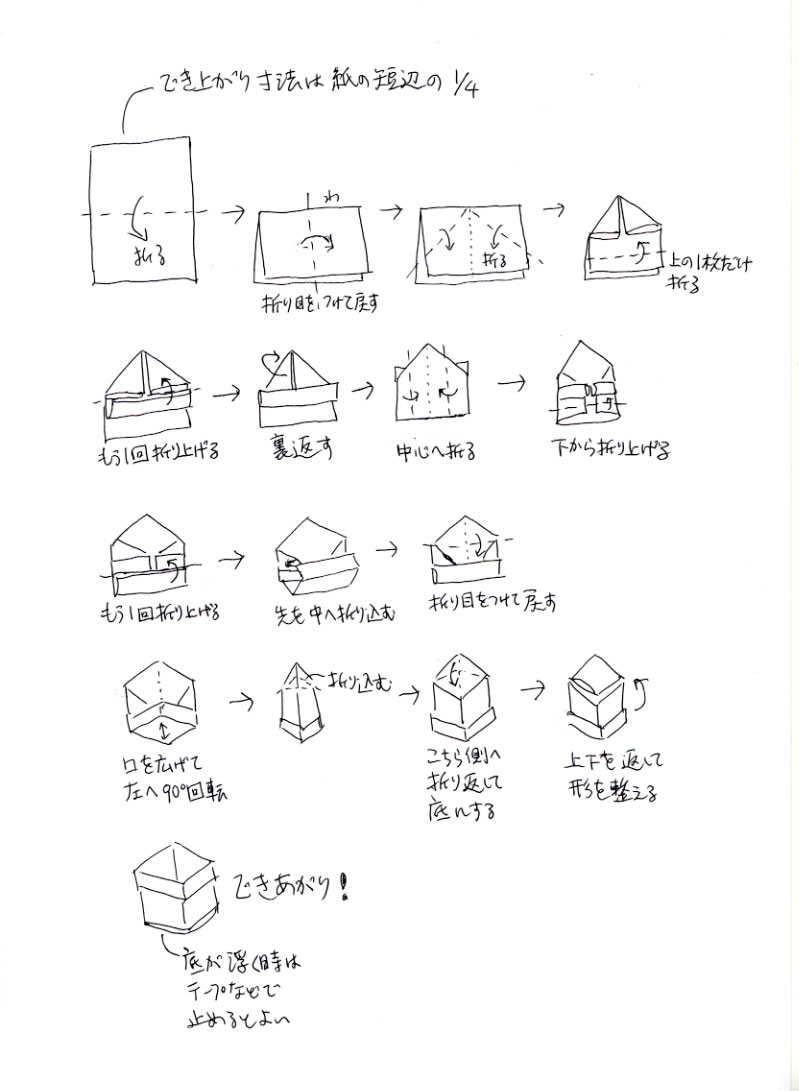 でき上がり寸法は紙の短辺の1/4
折る
わ
折り目をつけて戻す
折る
上の1枚だけ
折る
もう1回折り上げる
裏返す
中心へ折る
下から折り上げる
もう1回折り上げる
先を中へ折り込む
折り目をつけて戻す
口を広げて
左へ90°回転
折り込む
こちら側へ
折り返して
底にする
上下を返して
形を整える
できあがり!
底が浮く時は
テープなどで
止めるとよい